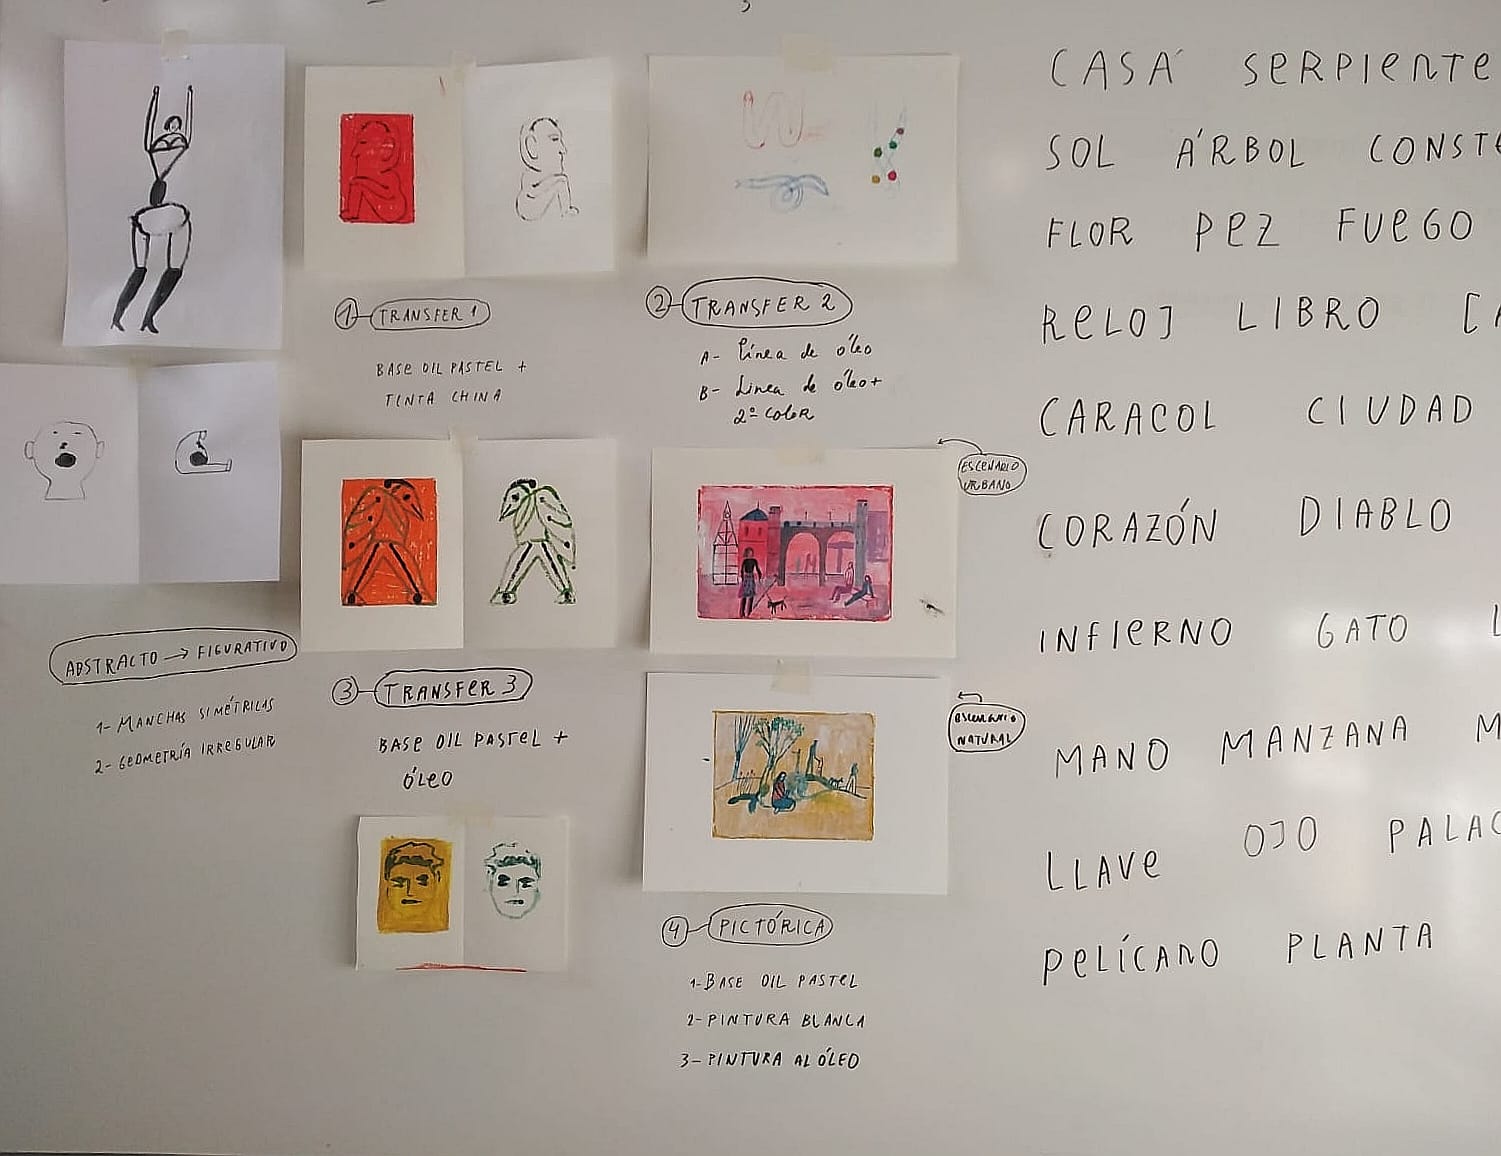 ABSTRACTO → FIGURATIVO
1- MANCHAS SIMÉTRICAS
2- GEOMETRÍA IRREGULAR
1 TRANSFER 1
BASE OIL PASTEL +
TINTA CHINA
2 TRANSFER 2
A- Línea de óleo
B- Linea de óleo+
2º COLOR
3 TRANSFER 3
BASE OIL PASTEL +
ÓLEO
ESCENARIO
URBANO
ESCENARIO
NATURAL
4 PICTÓRICA
1- BASE OIL PASTEL
2- PINTURA BLANCA
3- PINTURA AL ÓLEO
CASA SERPIENTE
SOL ÁRBOL CONSTE
FLOR PEZ FUEGO
RELOJ LIBRO
CARACOL CIUDAD
CORAZÓN DIABLO
INFIERNO GATO
MANO MANZANA M
LLAVE OJO PALAC
PELÍCANO PLANTA